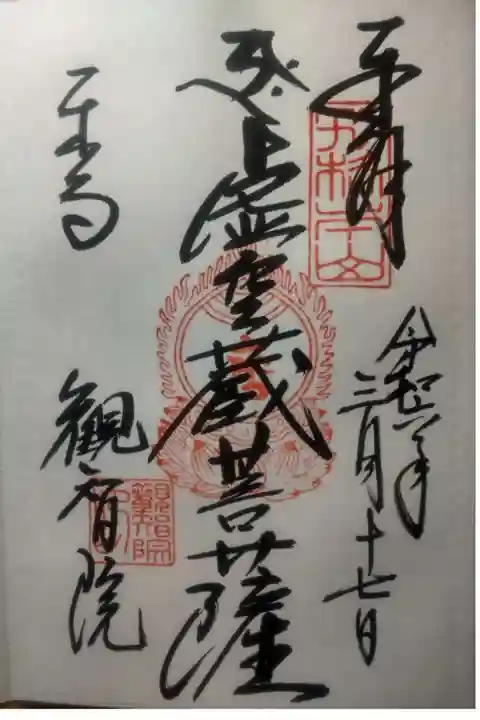 奉拝
令和六年
三月十七日
虚空蔵菩薩
東寺
観智院